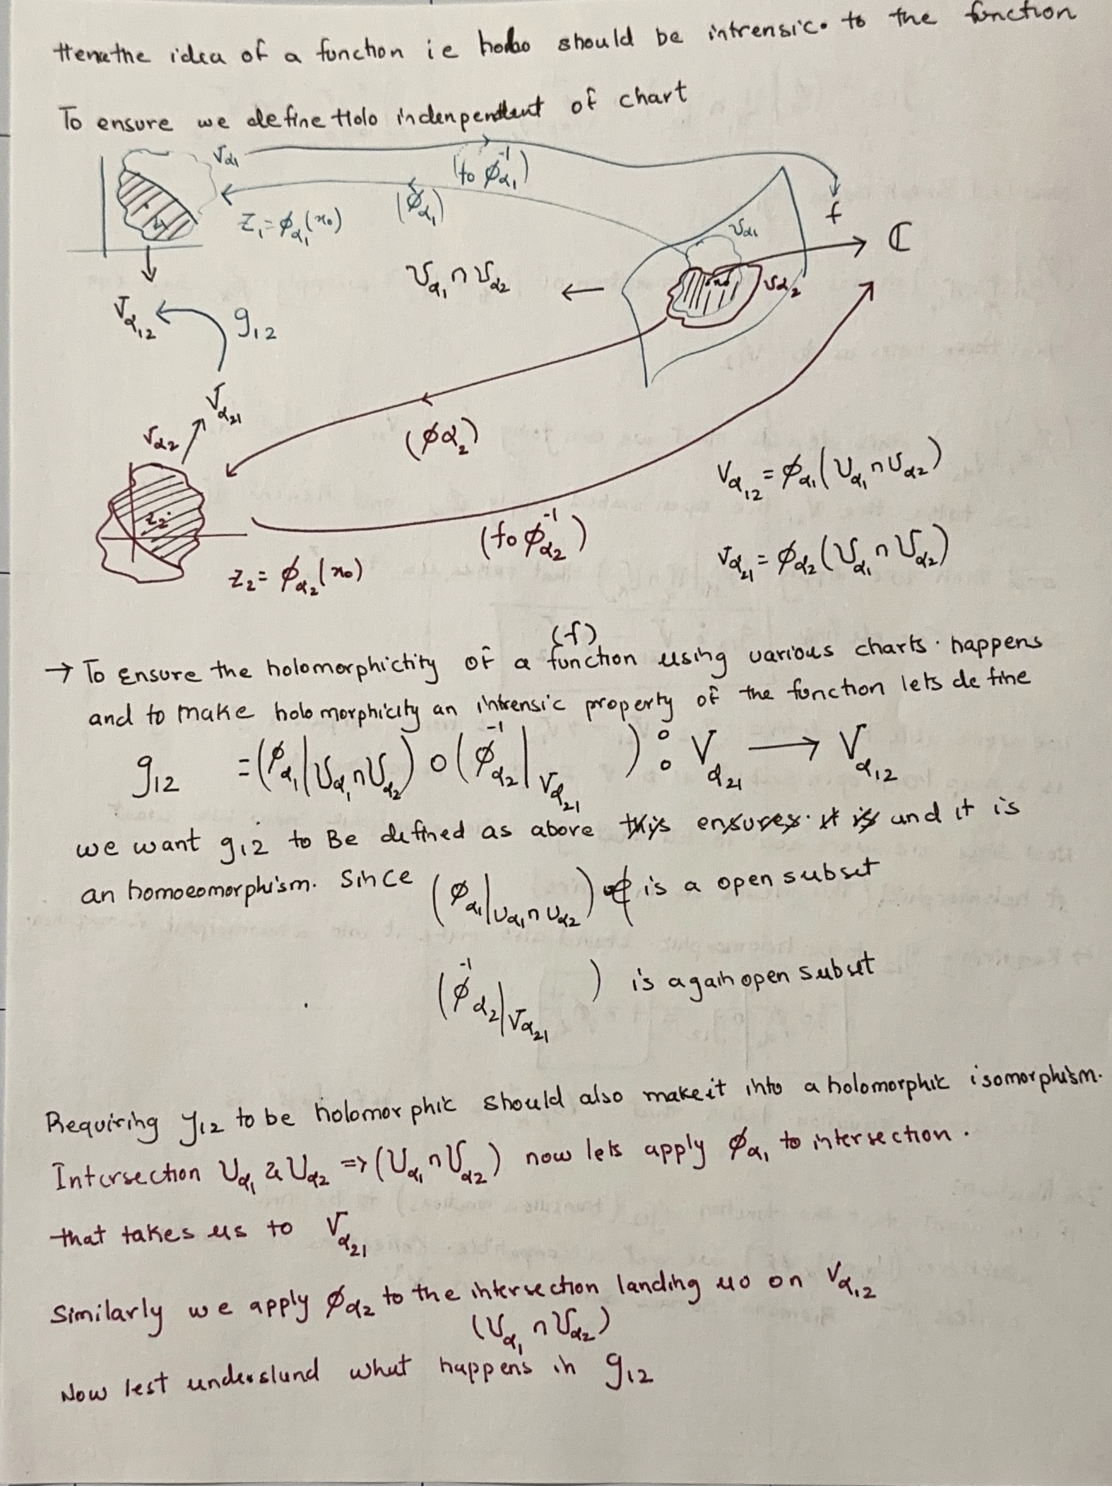 Hence the idea of a function ie holo should be intrensic to the function
To ensure we define Holo indenpendent of chart
Vα₁
(fo ϕ⁻¹α₁)
(ϕα₁)
Z₁ = ϕα₁(x₀)
f
ℂ
Uα₁
Uα₂
x₀
Uα₁ ∩ Uα₂
Vα₁₂
g₁₂
Vα₂₁
Vα₂
(ϕα₂)
Z₂
(fo ϕ⁻¹α₂)
Z₂ = ϕα₂(x₀)
Vα₁₂ = ϕα₁(Uα₁ ∩ Uα₂)
Vα₂₁ = ϕα₂(Uα₁ ∩ Uα₂)
(f)
→ To Ensure the holomorphictity of a function using various charts. happens
and to make holomorphicity an intrensic property of the function lets define
g₁₂ = (ϕα₁|Uα₁∩Uα₂) o (ϕ⁻¹α₂|Vα₂₁) : Vα₂₁ → Vα₁₂
we want g₁₂ to Be defined as above this ensures it is and it is
an homoeomorphism. Since (ϕα₁|Uα₁∩Uα₂) is a open subset
(ϕ⁻¹α₂|Vα₂₁) is again open subset
Requiring g₁₂ to be holomorphic should also make it into a holomorphic isomorphism.
Intersection Uα₁ & Uα₂ => (Uα₁ ∩ Uα₂) now lets apply ϕα₁ to intersection.
that takes us to Vα₂₁
Similarly we apply ϕα₂ to the intersection landing uo on Vα₁₂
(Uα₁ ∩ Uα₂)
Now lest understund what happens in g₁₂